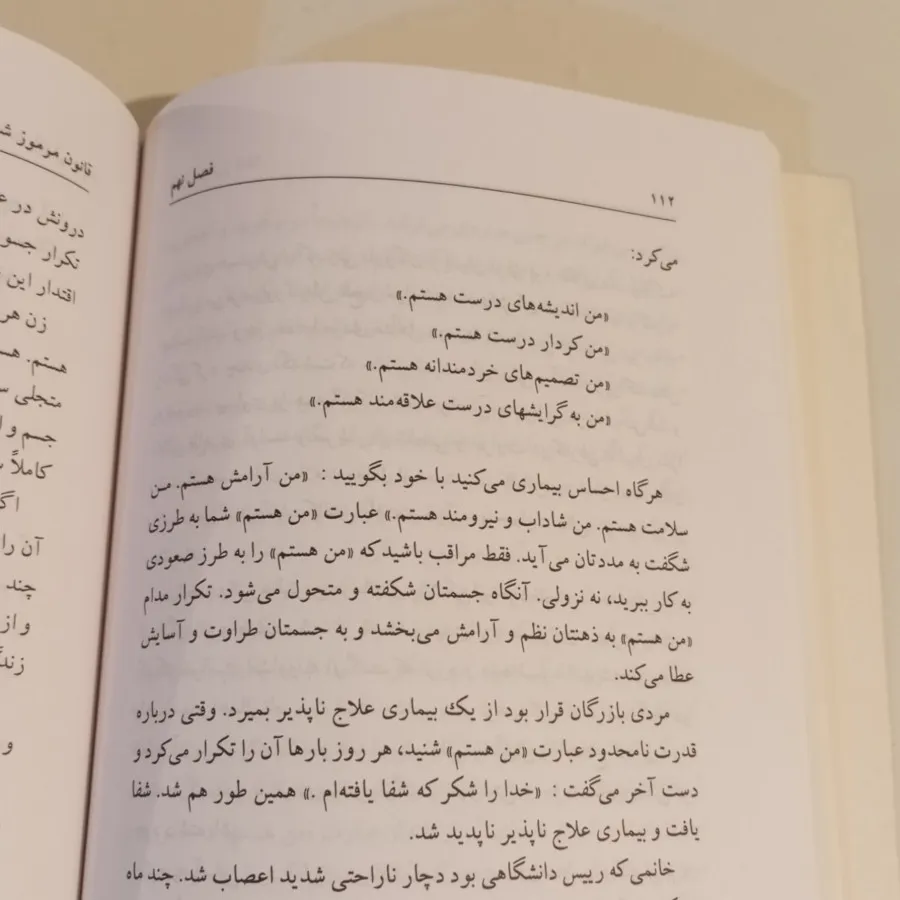 ۱۱۲
فصل نهم
می‌کرد:
«من اندیشه‌های درست هستم.»
«من کردار درست هستم.»
«من تصمیم‌های خردمندانه هستم.»
«من به گرایشهای درست علاقه‌مند هستم.»
هرگاه احساس بیماری می‌کنید با خود بگویید : «من آرامش هستم. من
سلامت هستم. من شاداب و نیرومند هستم.» عبارت «من هستم» شما به طرزی
شگفت به مددتان می‌آید. فقط مراقب باشید که «من هستم» را به طرز صعودی
به کار ببرید، نه نزولی. آنگاه جسمتان شکفته و متحول می‌شود. تکرار مدام
«من هستم» به ذهنتان نظم و آرامش می‌بخشد و به جسمتان طراوت و آسایش
عطا می‌کند.
مردی بازرگان قرار بود از یک بیماری علاج ناپذیر بمیرد. وقتی درباره
قدرت نامحدود عبارت «من هستم» شنید، هر روز بارها آن را تکرار می‌کرد و
دست آخر می‌گفت : «خدا را شکر که شفا یافته‌ام .» همین طور هم شد. شفا
یافت و بیماری علاج ناپذیر ناپدید شد.
خانمی که رییس دانشگاهی بود دچار ناراحتی شدید اعصاب شد. چند ماه
قانون مرموز
درونش در
تکرار
اقتدار این
زن هر
هستم.
متجلی
جسم و
کاملاً
آن را
چند
و از
و